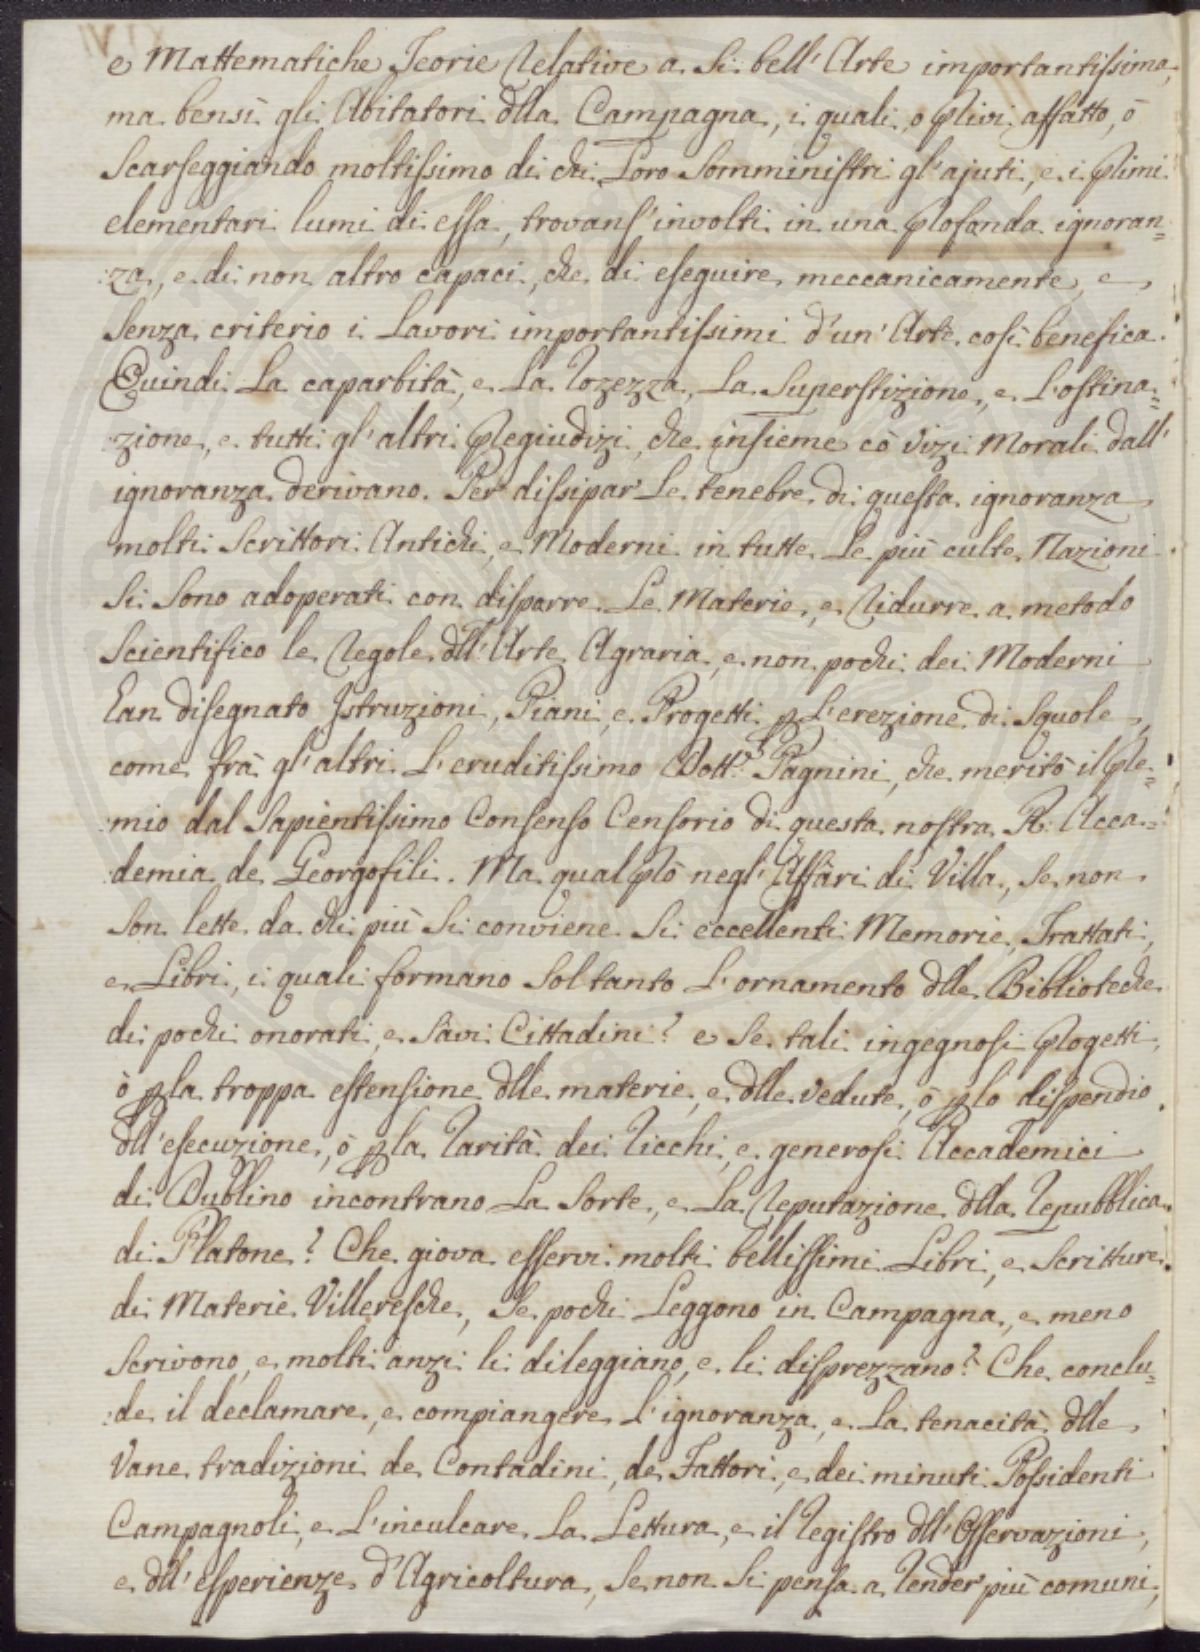 e Mattematiche Teorie Relative a si bell' Arte importantissima,
ma bensì gli Abitatori dlla Campagna, i quali o privi affatto, ò
Scarseggiando moltissimo di chi Loro Somministri gl'ajuti, e i primi
elementari lumi di essa, trovans' involti in una profonda ignoran=
:za, e di non altro capaci, che di eseguire meccanicamente, e
Senza criterio i Lavori importantissimi d'un' Arte così benefica.
Quindi La caparbità, e La Rozezza, La Superstizione, e L'ostina=
:zione, e tutti gl'altri Pregiudizi, che insieme cò vizi Morali dall'
ignoranza derivano. Per dissipar Le tenebre di questa ignoranza
molti Scrittori Antichi, e Moderni in tutte Le più culte Nazioni
Si Sono adoperati con disporre Le Materie, e Ridurre a metodo
Scientifico le Regole dll'Arte Agraria, e non pochi dei Moderni
Han disegnato Istruzioni, Piani, e Progetti p L'erezione di Squole,
come frà gl'altri L'eruditissimo Dott.r Pagnini, che meritò il Pre=
:mio dal Sapientissimo Consenso Censorio di questa nostra R. Acca=
:demia de Georgofili. Ma qual prò negl'Affari di Villa, Se non
Son lette da chi più Si conviene Si eccellenti Memorie, Trattati,
e Libri, i quali formano Soltanto L'ornamento dlle Biblioteche
di pochi onorati, e Savi Cittadini? e Se tali ingegnosi Progetti,
ò p la troppa estensione dlle materie, e dlle vedute, ò p lo dispendio
dll'esecuzione, ò p la Rarità dei Ricchi, e generosi Accademici
di Dublino incontrano La Sorte, e La Reputazione dlla Repubblica
di Platone? Che giova esservi molti bellissimi Libri, e Scritture
di Materie Villeresche, Se pochi Leggono in Campagna, e meno
Scrivono, e molti anzi li dileggiano, e li disprezzano? Che conclu=
:de il declamare, e compiangere L'ignoranza, e La tenacità dlle
Vane tradizioni de Contadini, de Fattori, e dei minuti Possidenti
Campagnoli, e L'inculcare La Lettura, e il Registro dll'Osservazioni,
e dll'esperienze d'Agricoltura, Se non Si pensa a Render più comuni,